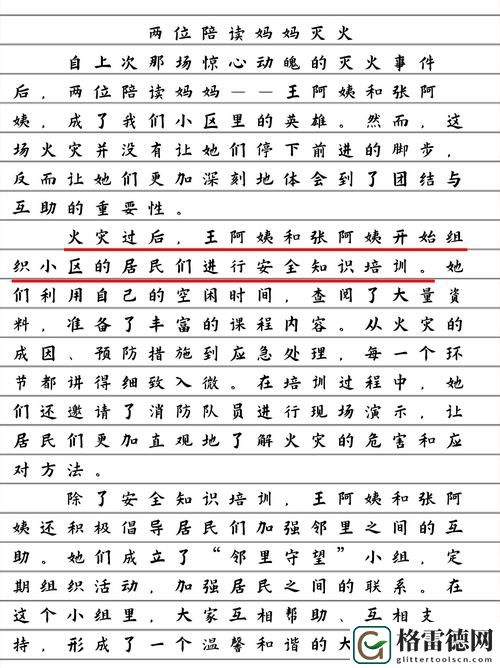 两位陪读妈妈灭火
自上次那场惊心动魄的灭火事件
后，两位陪读妈妈——王阿姨和张阿
姨，成了我们小区里的英雄。然而，这
场火灾并没有让她们停下前进的脚步，
反而让她们更加深刻地体会到了团结与
互助的重要性。
火灾过后，王阿姨和张阿姨开始组
织小区的居民们进行安全知识培训。她
们利用自己的空闲时间，查阅了大量资
料，准备了丰富的课程内容。从火灾的
成因、预防措施到应急处理，每一个环
节都讲得细致入微。在培训过程中，她
们还邀请了消防队员进行现场演示，让
居民们更加直观地了解火灾的危害和应
对方法。
除了安全知识培训，王阿姨和张阿
姨还积极倡导居民们加强邻里之间的互
助。她们成立了“邻里守望”小组，定
期组织活动，加强居民之间的联系。在
这个小组里，大家互相帮助、互相支
持，形成了一个温馨和谐的大
格雷德网
glittertoolscn.com